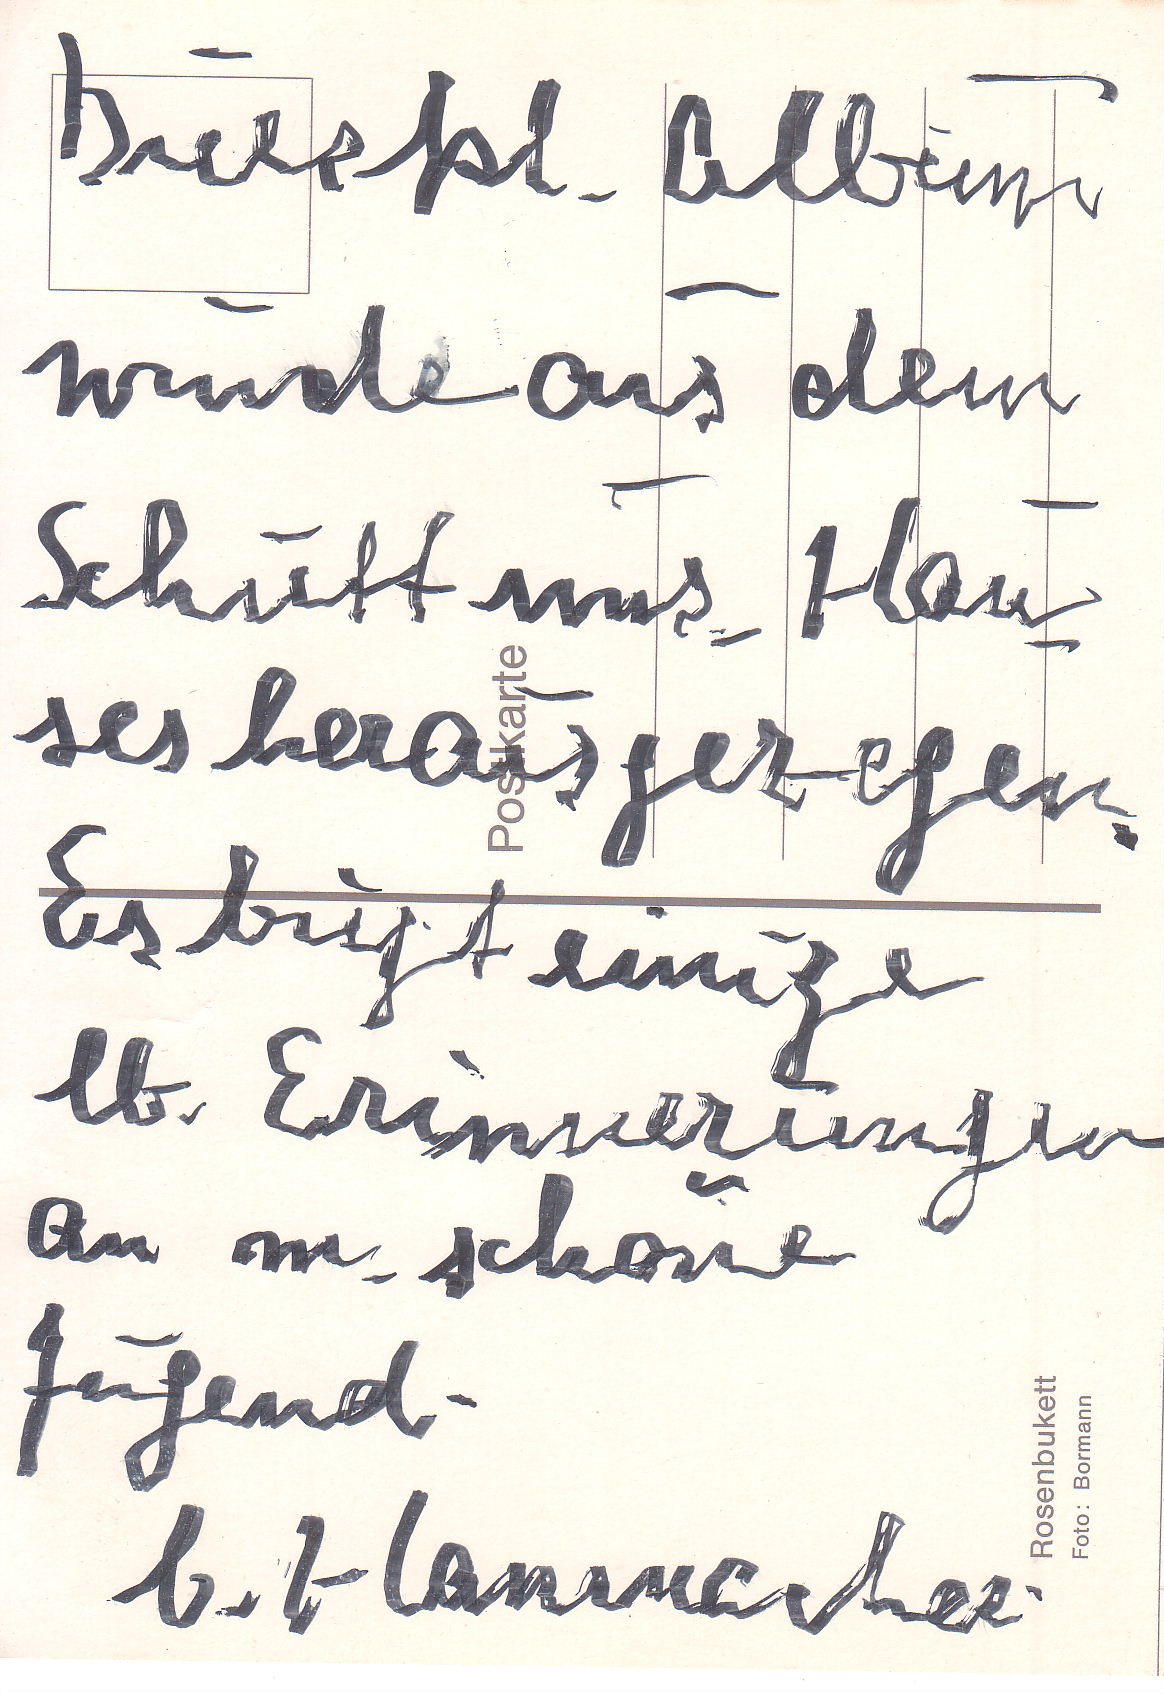 Album
wurde aus dem
Schutt uns. Hau=
ses herausgezogen.
Es birgt einige
lb. Erinnerungen
an m. schöne
Jugend.
Hammacher
Postkarte
Rosenbukett
Foto: Bormann